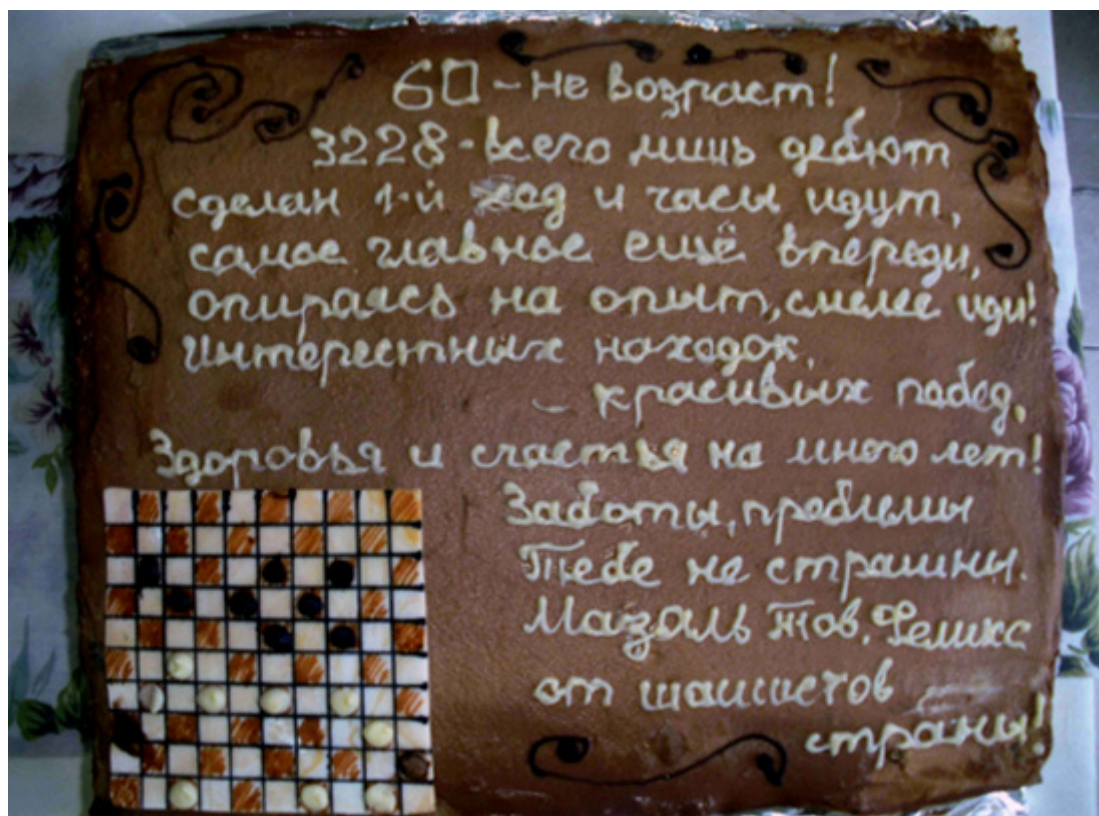 60 - не возраст!
3228 - всего лишь дебют
сделан 1-й ход и часы идут,
самое главное ещё впереди,
опираясь на опыт, смелее иди!
Интерестных находок,
- красивых побед,
Здоровья и счастья на много лет!
Заботы, проблемы
Тебе не страшны.
Мазаль Тов, Феликс
от шашистов
страны!